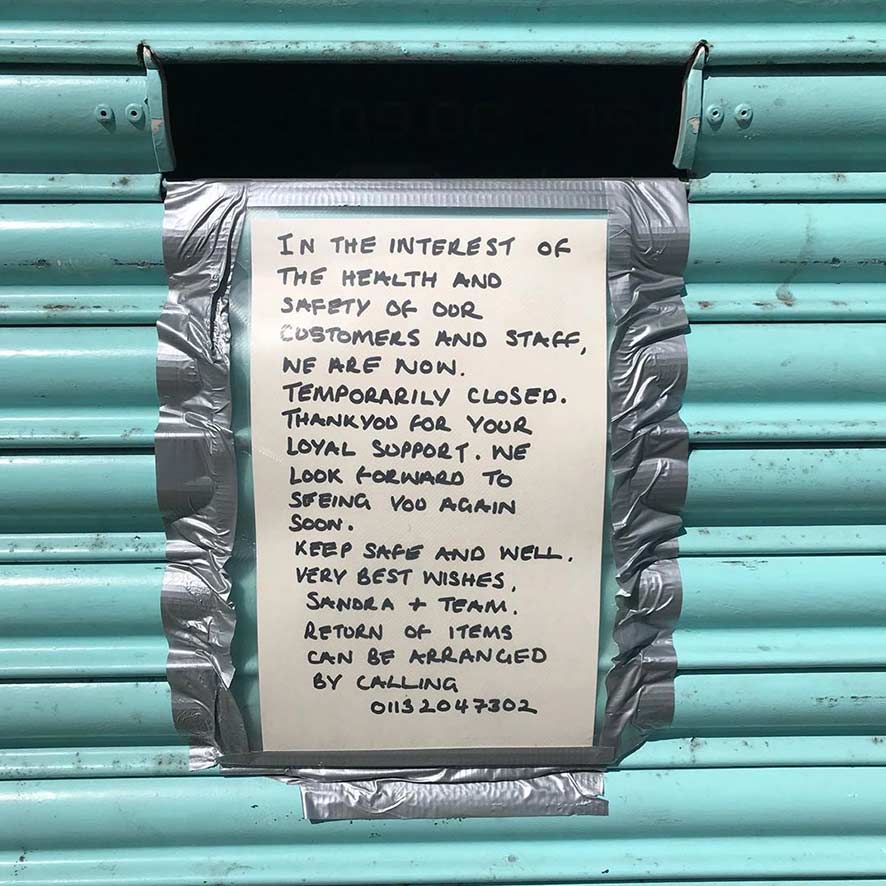 IN THE INTEREST OF
THE HEALTH AND
SAFETY OF OUR
CUSTOMERS AND STAFF,
WE ARE NOW.
TEMPORARILY CLOSED.
THANKYOU FOR YOUR
LOYAL SUPPORT. WE
LOOK FORWARD TO
SEEING YOU AGAIN
SOON.
KEEP SAFE AND WELL.
VERY BEST WISHES,
SANDRA + TEAM.
RETURN OF ITEMS
CAN BE ARRANGED
BY CALLING
01132047302